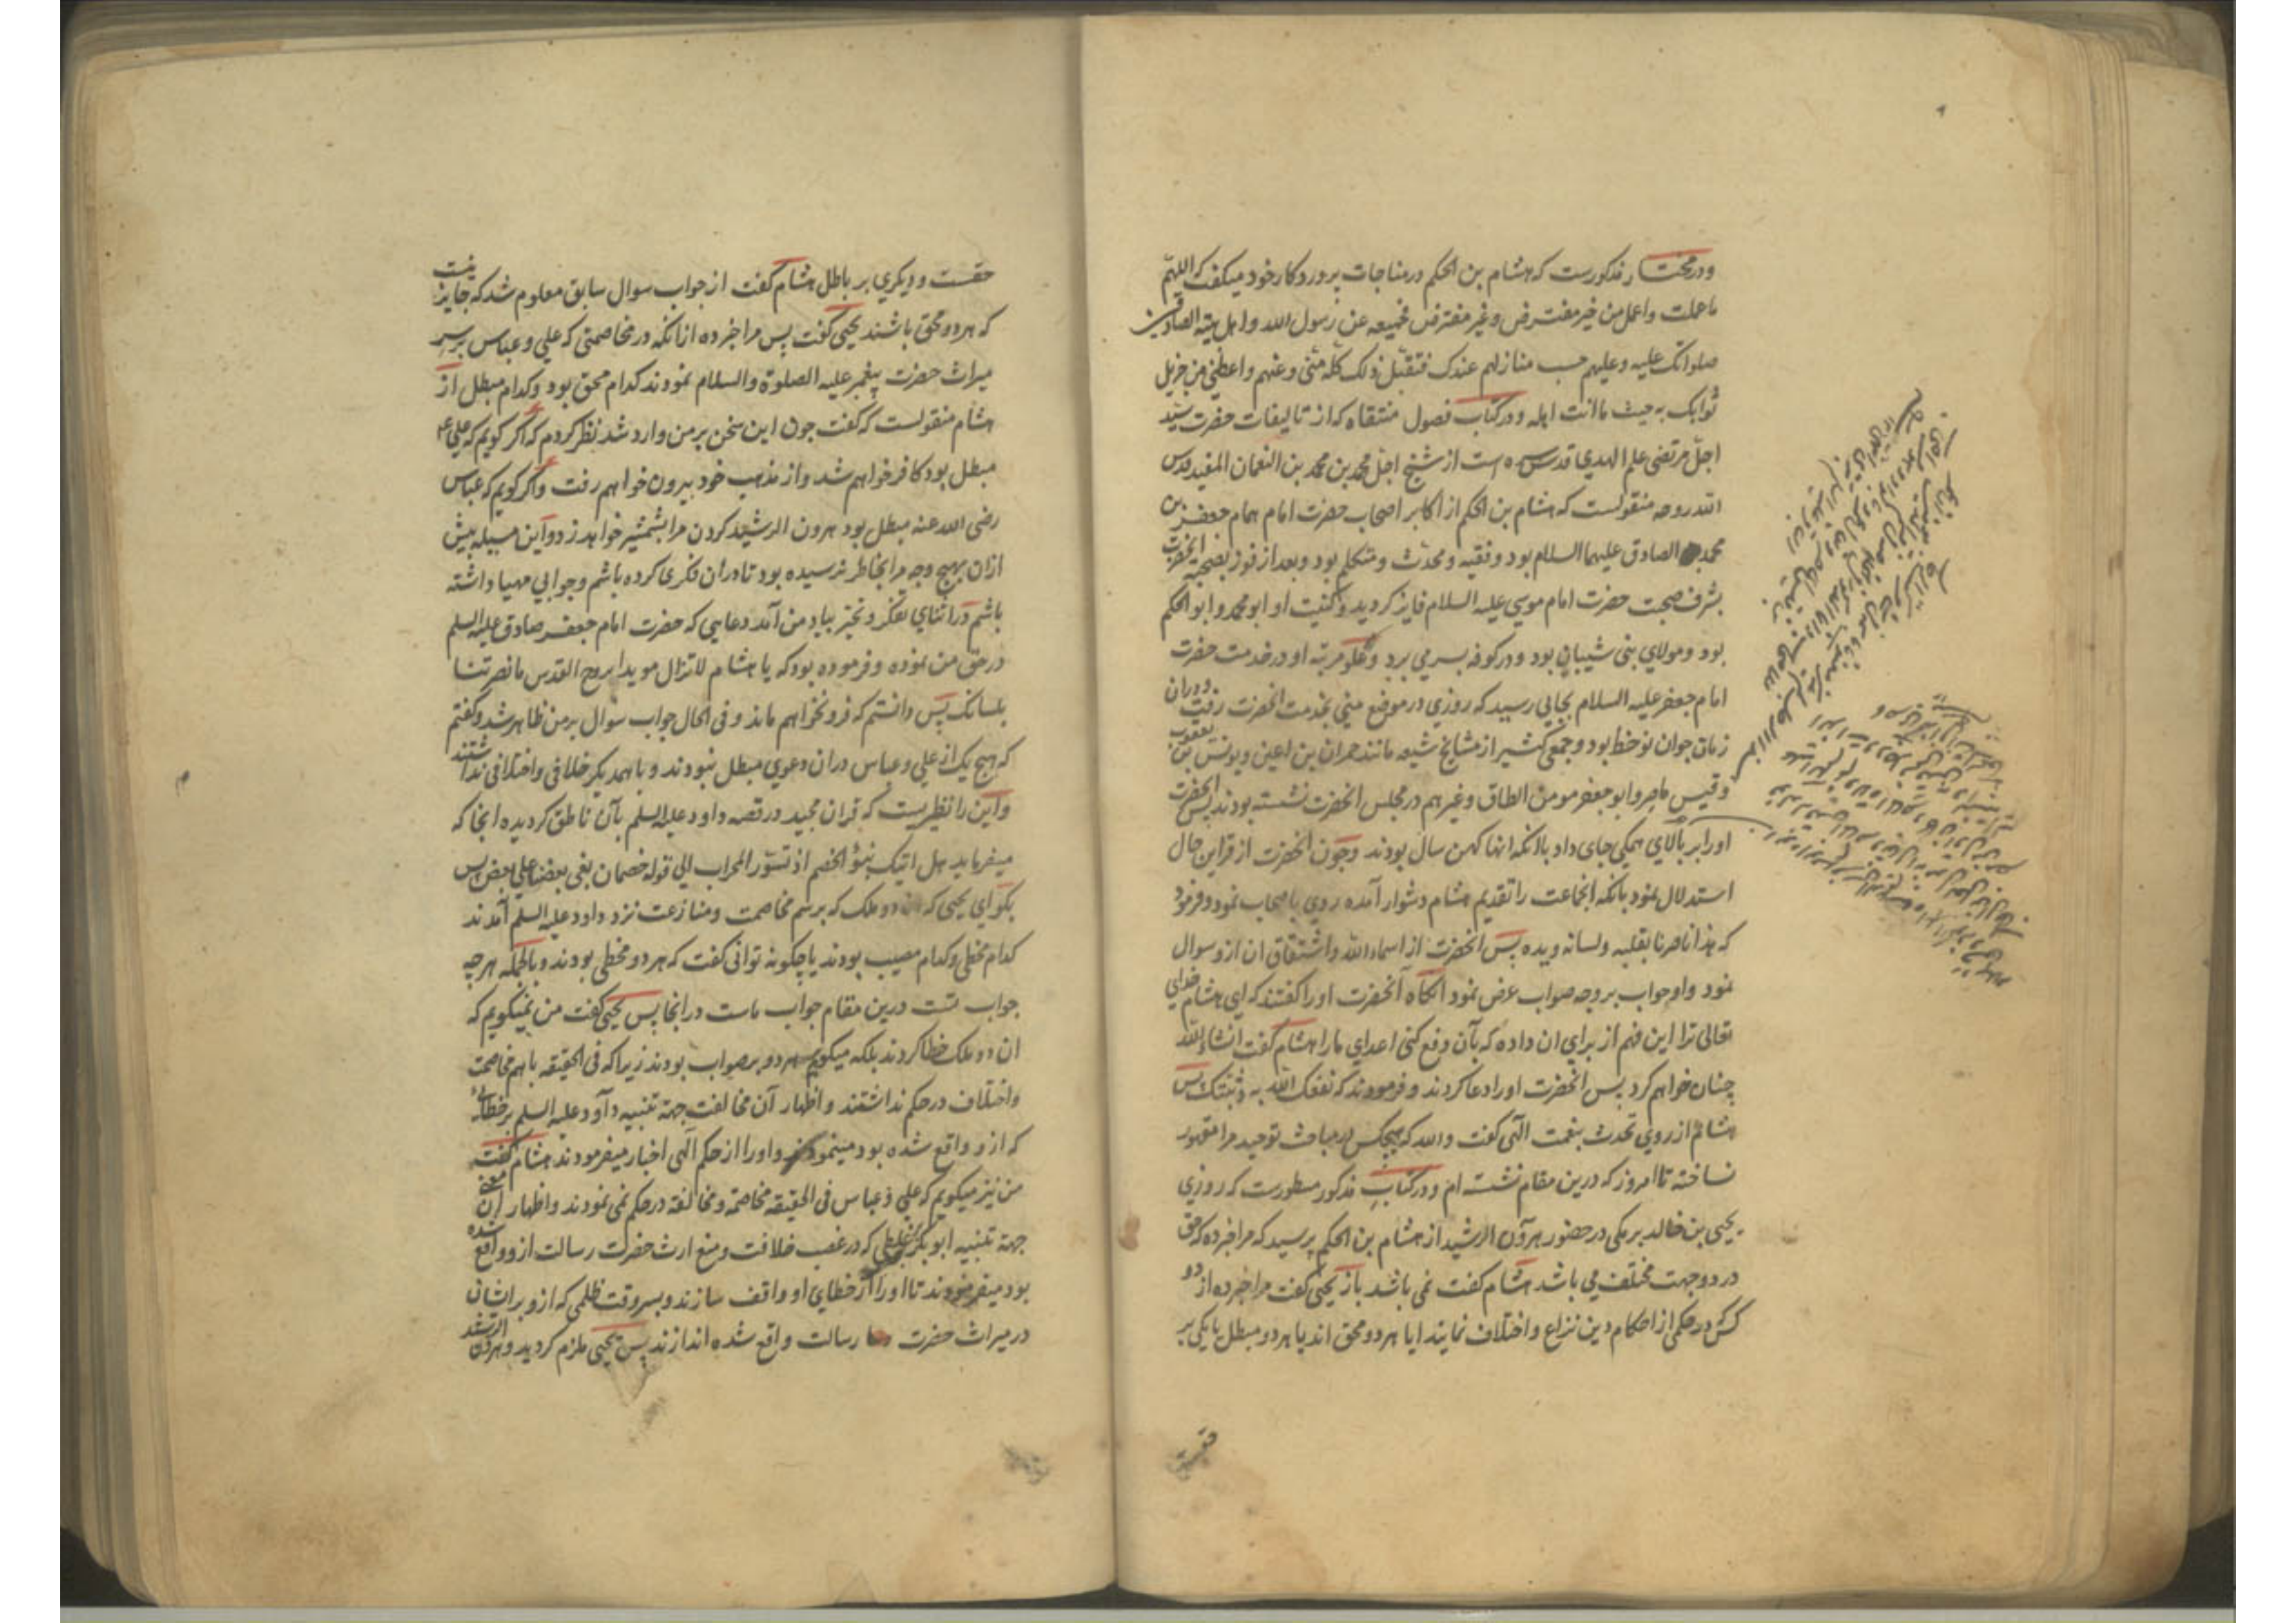 ودر مختار مذکورست که هشام بن الحکم در مناجات پروردکار خود میکفت که اللهم
ما عملت واعمل من خیر مفترض وغیر مفترض فجمیعه عن رسول الله واهل بیته الصادقین
صلواتک علیه وعلیهم حسب منازلهم عندک فتقبل ذلک کله منی وعنهم واعطنی من جزیل
ثوابک به حیث ما انت اهله ودر کتاب فصول منتقاه که از تالیفات حضرت سید
اجل مرتضی علم الهدی قدس سره است از شیخ اجل محمد بن محمد بن النعمان المفید قدس
الله روحه منقولست که هشام بن الحکم از اکابر اصحاب حضرت امام همام جعفر بن
محمد الصادق علیهما السلام بود وفقیه ومحدث ومتکلم بود وبعد از فوز بصحبت آنحضرت
بشرف صحبت حضرت امام موسی علیه السلام فایز کردید وکنیت او ابو محمد وابو الحکم
بود ومولای بنی شیبان بود ودر کوفه بسر می برد وعلو مرتبه او در خدمت حضرت
امام جعفر علیه السلام بجایی رسید که روزی در موضع منی بخدمت انحضرت رفت ودران
زمان جوان نوخط بود وجمعی کثیر از مشایخ شیعه مانند حمران بن اعین ویونس بن یعقوب
وقیس ماصر وابو جعفر مومن الطاق وغیرهم در مجلس انحضرت نشسته بودند پس انحضرت
اورا بر بالای همکی جای داد با انکه انها کهن سال بودند وچون انحضرت از قراین حال
استدلال نمود بانکه انجماعت را تقدیم هشام دشوار آمده روی باصحاب نمود وفرمود
که هذا ناصرنا بقلبه ولسانه ویده پس انحضرت از اسماء الله واشتقاق ان ازو سوال
نمود واو جواب بر وجه صواب عرض نمود انکاه آنحضرت اورا کفتند که ای هشام خدای
تعالی ترا این فهم از برای ان داده که بآن دفع کنی اعدای ما را هشام کفت انشاء الله
چنان خواهم کرد پس انحضرت اورا دعا کردند وفرمودند که نفعک الله به وثبتک پس
هشام از روی تحدث بنعمت الهی کفت والله که هیچکس در مباحث توحید مرا مقهور
نساخته تا امروز که درین مقام نشسته ام ودر کتاب مذکور مسطورست که روزی
یحیی بن خالد برمکی در حضور هرون الرشید از هشام بن الحکم پرسید که مرا خبر ده که حق
در دو جهت مختلف می باشد هشام کفت نمی باشد باز یحیی کفت مرا خبر ده از دو
کس در حکمی از احکام دین نزاع واختلاف نمایند ایا هر دو محق اند یا هر دو مبطل یا یکی بر
حقست
حقست ودیکری بر باطل هشام کفت از جواب سوال سابق معلوم شد که جایز نیست
که هر دو محق باشند یحیی کفت پس مرا خبر ده از انکه در مخاصمتی که علی وعباس بر سر
میراث حضرت پیغمبر علیه الصلوة والسلام نمودند کدام محق بود وکدام مبطل از
هشام منقولست که کفت چون این سخن بر من وارد شد نظر کردم که اکر کویم که علی ع
مبطل بود کافر خواهم شد واز مذهب خود بیرون خواهم رفت واکر کویم که عباس
رضی الله عنه مبطل بود هرون الرشید کردن مرا بشمشیر خواهد زد واین مسیله پیش
ازان بهیچ وجه مرا بخاطر نرسیده بود تا دران فکری کرده باشم وجوابی مهیا داشته
باشم در اثنای تفکر وتحیر بیاد من آمد دعایی که حضرت امام جعفر صادق علیه السلم
در حق من نموده وفرموده بود که یا هشام لا تزال مویدا بروح القدس ما نصرتنا
بلسانک پس دانستم که فرو نخواهم ماند وفی الحال جواب سوال بر من ظاهر شد وکفتم
که هیچ یک از علی وعباس دران دعوی مبطل نبودند وبا همدیکر خلافی واختلافی نداشتند
واین را نظیریست که قران مجید در قصه داود علیه السلم بآن ناطق کردیده انجا که
میفرماید هل اتیک نبؤ الخصم اذ تسوروا المحراب الی قوله خصمان بغی بعضنا علی بعض پس
بکو ای یحیی که ان دو ملک که برسم مخاصمت ومنازعت نزد داود علیه السلم آمدند
کدام مخطی وکدام مصیب بودند یا چکونه توانی کفت که هر دو مخطی بودند وبالجمله هر چه
جواب تست درین مقام جواب ماست در انجا پس یحیی کفت من نمیکویم که
ان دو ملک خطا کردند بلکه میکویم هر دو بر صواب بودند زیرا که فی الحقیقه با هم مخاصمت
واختلاف در حکم نداشتند واظهار آن مخالفت جهة تنبیه داود علیه السلم بر خطائی
که ازو واقع شده بود مینمودند واورا از حکم الهی اخبار میفرمودند هشام کفت
من نیز میکویم که علی وعباس فی الحقیقه مخاصمة ومخالفة در حکم نمی نمودند واظهار آن معنی
جهة تنبیه ابو بکر بر غلطی که در غصب خلافت ومنع ارث حضرت رسالت ازو واقع شده
بود میفرمودند تا اورا از خطای او واقف سازند وبسر وقت ظلمی که ازو بر ایشان
در میراث حضرت رسالت واقع شده اندازند پس یحیی ملزم کردید وهرون الرشید